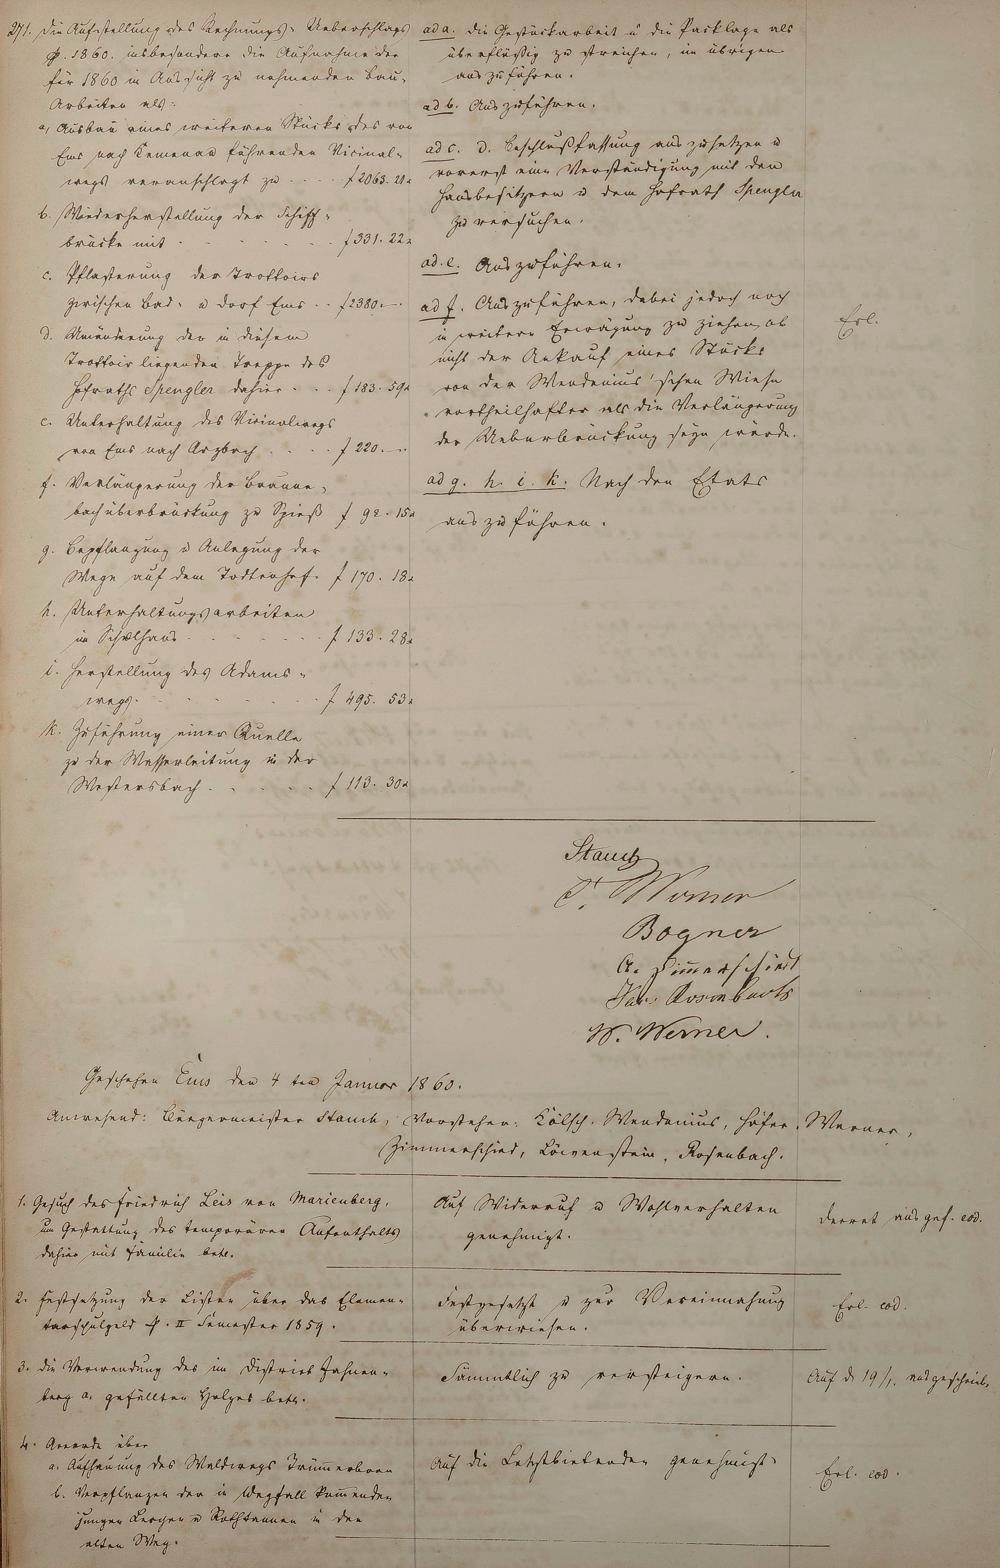 271. Die Aufstellung des Rechnungs-Ueberschlags
p. 1860. insbesondere die Aufnahme der
für 1860 in Aussicht zu nehmenden Bau-
Arbeiten als:
a, Ausbau eines weiteren Stücks des von
Ems nach Kemenau führenden Vicinal-
wegs veranschlagt zu f 2063. 21
b. Wiederherstellung der Schiff-
brücke mit f 331. 22
c. Pflasterung der Trottoirs
zwischen Bad- u Dorf Ems f 2380. —
d. Umänderung der in diesem
Trottoir liegenden Treppe des
Hofraths Spengler dahier f 183. 59
e. Unterhaltung des Vicinalwegs
von Ems nach Arzbach f 220. —
f. Verlängerung der Braune-
bachüberbrückung zu Spieß f 92. 15
g. Bepflanzung u Anlegung der
Wege auf dem Todtenhof. f 170. 18
h. Unterhaltungsarbeiten
im Schulhaus f 133. 28
i. Herstellung des Adams-
wegs. f 495. 53
k. Zuführung einer Quelle
zu der Wasserleitung in der
Westersbach f 113. 30
ad a. die Gestückarbeit u die Packlage als
überflüßig zu streichen, im übrigen
auszuführen.
ad b. Auszuführen.
ad c. d. Beschlußfassung auszusetzen u
vorerst eine Verständigung mit den
Hausbesitzern u dem Hofrath Spengler
zu versuchen.
ad e. Auszuführen.
ad f. Auszuführen, dabei jedoch noch
in weitere Erwägung zu ziehen, ob
nicht der Ankauf eines Stücks
von der Wendenius'schen Wiese
vortheilhafter als die Verlängerung
der Ueberbrückung seyn würde.
ad g. h. i. k. Nach den Etats
auszuführen.
Erl.
Stamb
Werner
Bogner
A. Zimmerschied
Rosenbach
W. Werner.
Geschehen Ems den 4ten Januar 1860.
Anwesend: Bürgermeister Stamb, Vorsteher: Kölsch, Wendenius, Höfer, Werner,
Zimmerschied, Löwenstein, Rosenbach.
1. Gesuch des Friedrich Leis von Marienberg,
um Gestattung des temporären Aufenthalts
dahier mit Familie betr.
Auf Widerruf u Wohlverhalten
genehmigt.
Decret ausgef. eod.
2. Festsetzung der Listen über das Elemen-
tarschulgeld p. II Semester 1859.
Festgesetzt u zur Vereinnahmung
überwiesen.
Erl. eod.
3. Die Verwendung des im District Fahnen-
berg a. gefällten Holzes betr.
Sämmtlich zu versteigern.
Auf d 19/1. ausgeschrieb.
4. Accorde über
a. Aufhauung des Waldwegs Trümmerborn
b. Verpflanzen der in Wegfall kommenden
jungen Lerchen u Rothtannen in den
alten Weg.
Auf die Letztbietenden genehmigt.
Erl. eod.